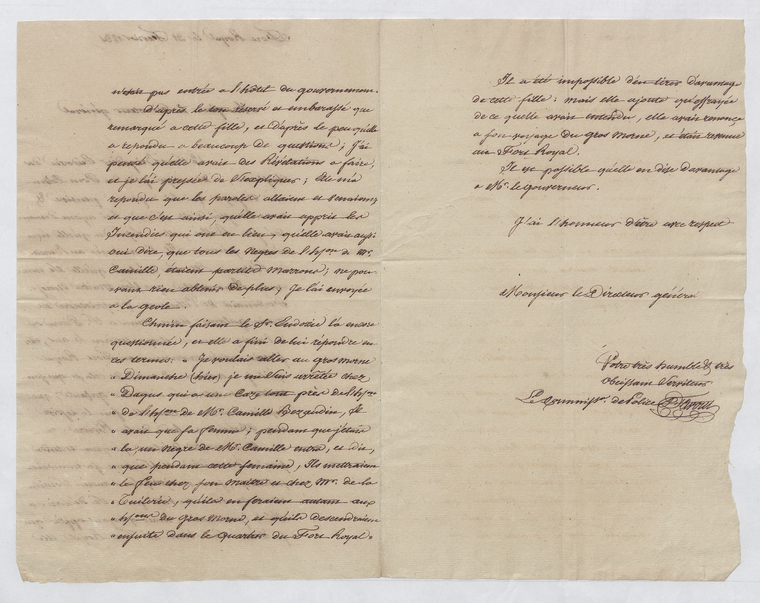 n'était pas entrée à l'hôtel du gouvernement.
D'après le ton réservé et embarassé que
remarqué à cette fille, et d'après le peu qu'elle
a repondu a beaucoup de questions; J'ai
pensé qu'elle avait des Révélations a faire,
et je l'ai pressée de s'expliquer; Elle m'a
repondu que les paroles allaient et venaient
et que c'est ainsi, qu'elle avait appris les
Incendies qui ont eu lieu, qu'elle avait aussi
oui dire, que tous les Negres de l'h/on de Mr.
Camille, étaient partis Marrons; ne pou-
vant rien obtenir de plus, Je l'ai envoyée
a la geole.
Chemin faisant le Sr. l'a encore
questionnée, et elle a fini de lui répondre en
ces termes: " Je voulais aller au gros morne
" Dimanche (hier) je me suis arrêtée chez
" Dagus qui a un Caze tout près de l'h/on
" de l'h/on de Mr. Camille , Il
" avait que sa femme; pendant que j'étais
" la, un negre de Mr. Camille entra, et dit,
" que pendant cette semaine, Ils mettraient
" le feu chez son maitre et chez Mr. de la
" Tuilerie, qu'ils en feraient autant aux
" h/ons du Gros Morne, et qu'ils descendraient
" ensuite dans le quartier du Fort Royal "
Il a été impossible d'en tirer d'avantage
de cette fille: mais elle ajoute qu'effrayée
de ce qu'elle avait entendu, elle avait renoncé
a son voyage du gros Morne, et était revenue
au Fort Royal.
Il est possible qu'elle en dise d'avantage
a Mr. le Gouverneur.
J'ai l'honneur d'être avec respect
Monsieur le Directeur général
Votre très humble & très
obéissant Serviteur
Le Commiss. de Police